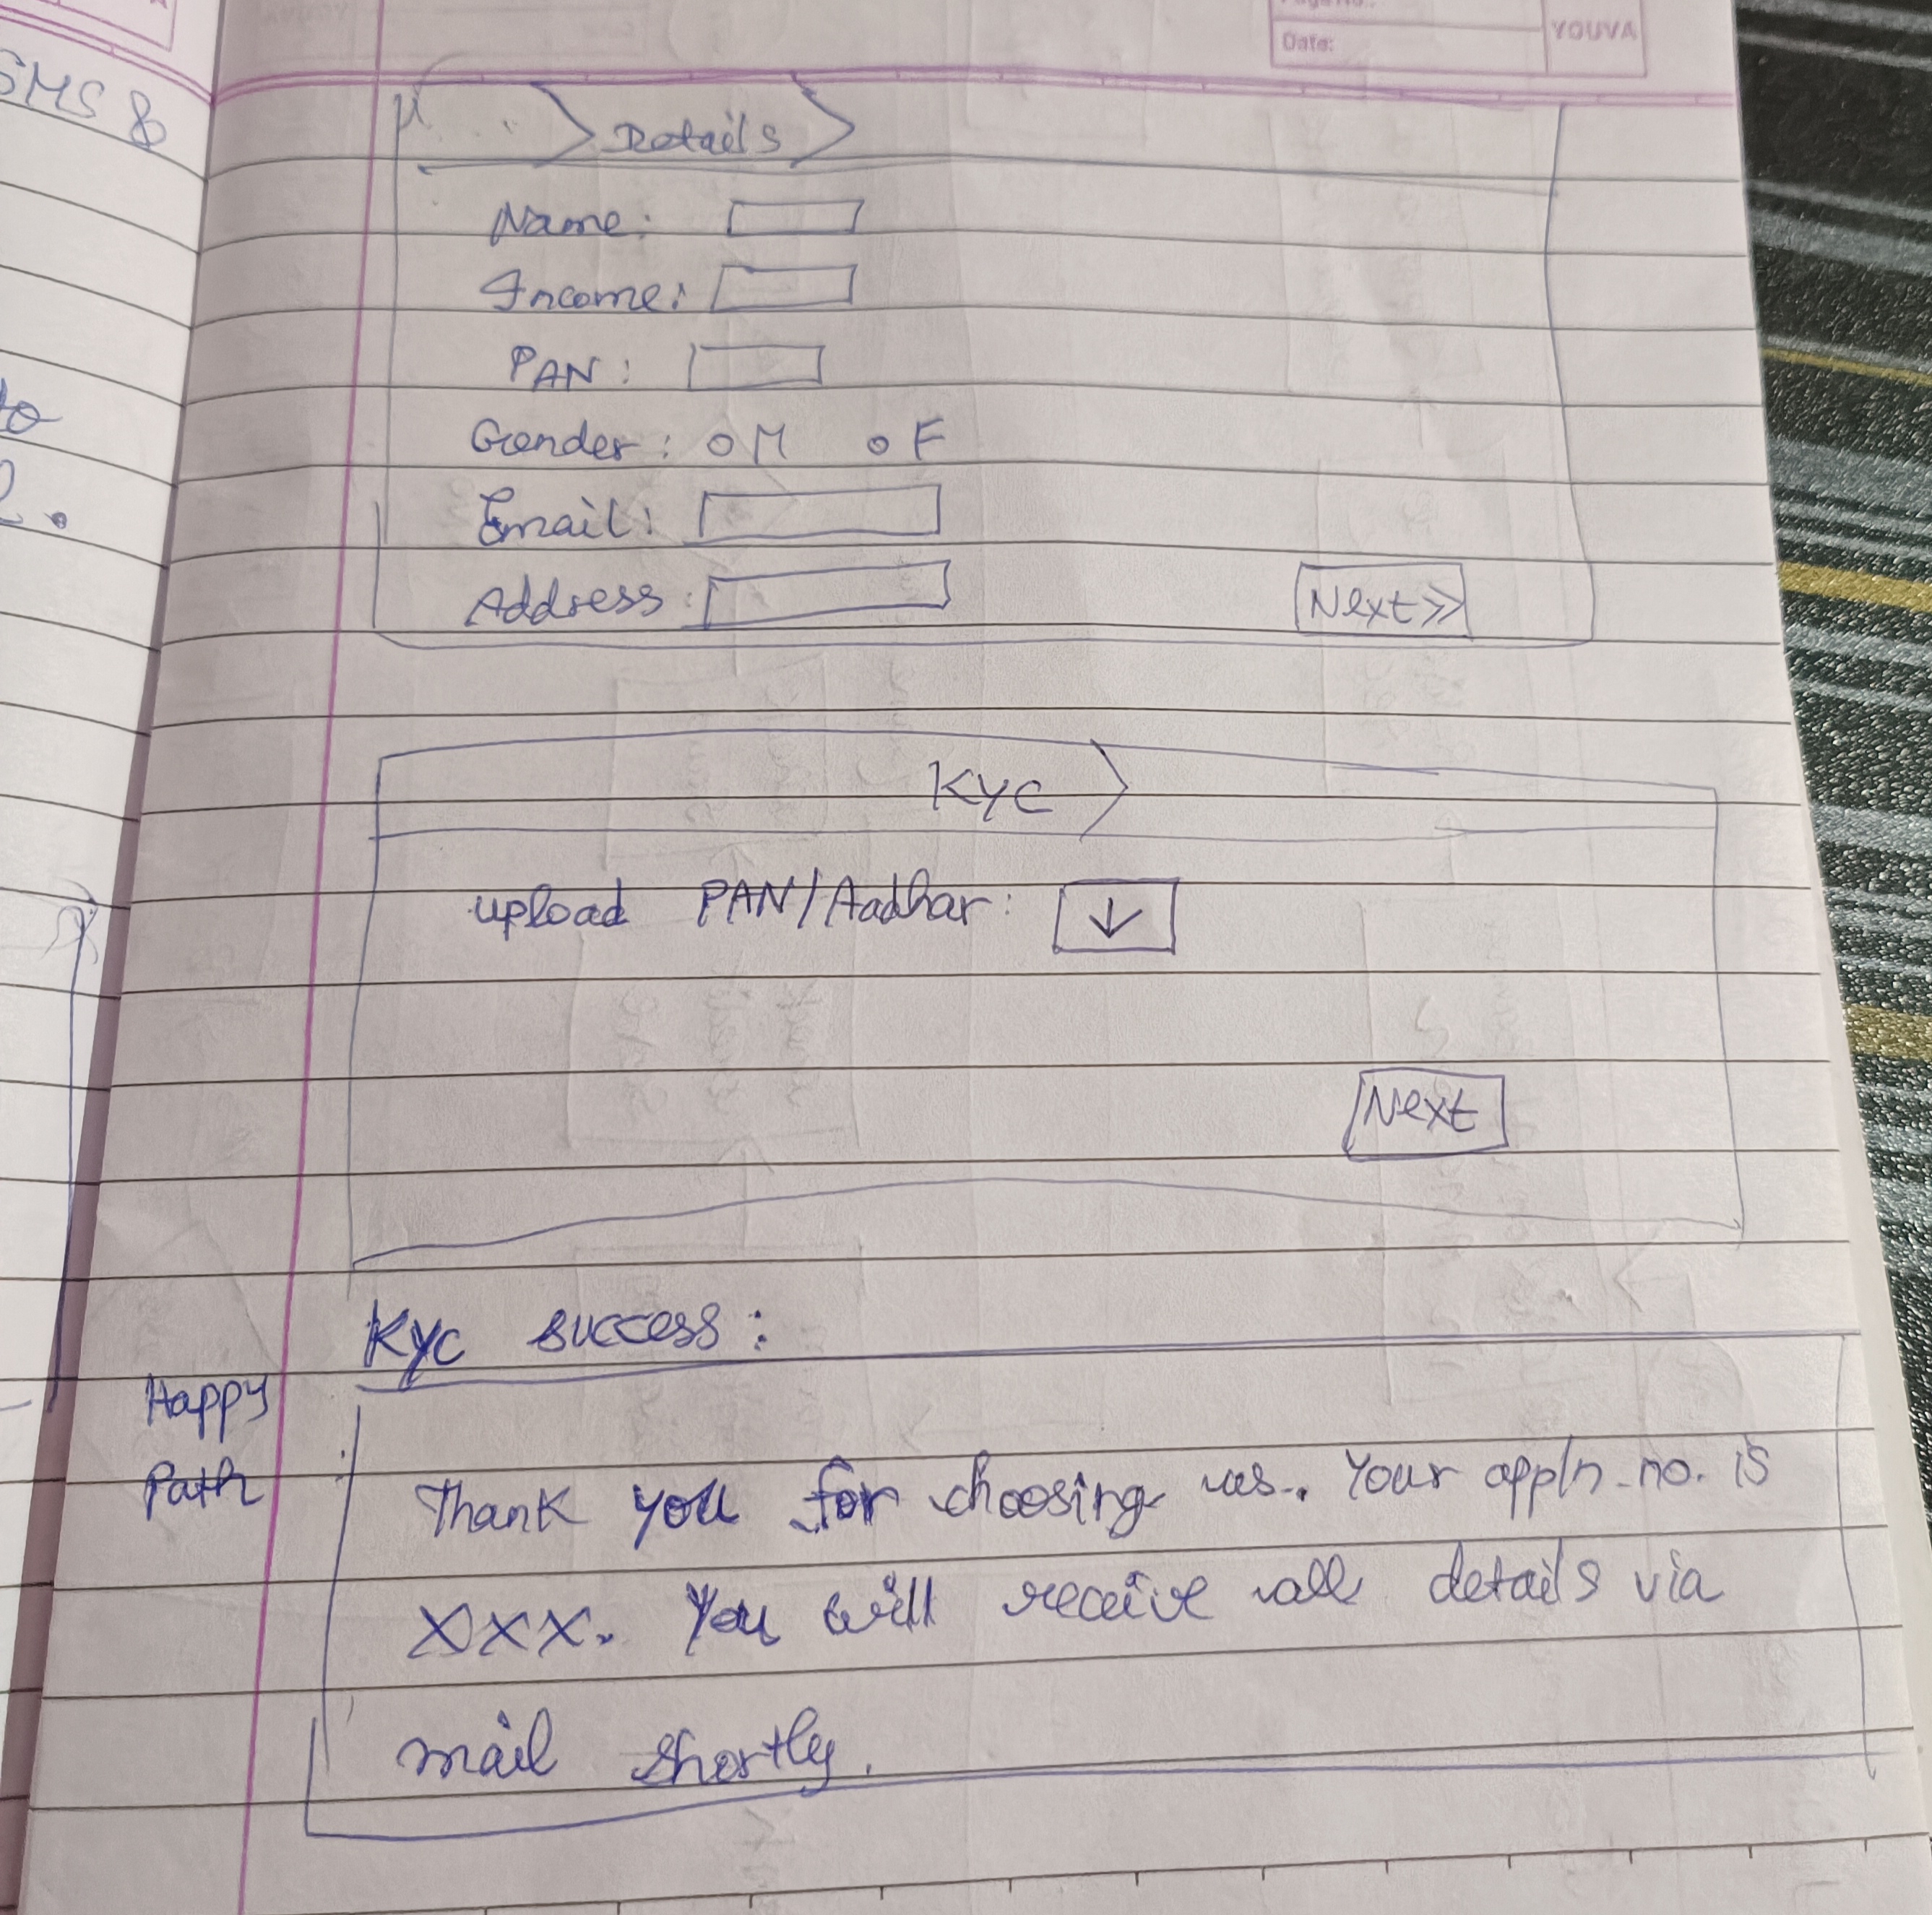 SMS &
to
Date:
YOUVA
Details
Name:
Income:
PAN:
Gender: M F
Email:
Address:
Next >>
KYC
upload PAN/Aadhar: ↓
Next
KYC success:
Happy
Path
Thank you for choosing us. Your appln. no. is
XXX. You will receive all details via
mail shortly.